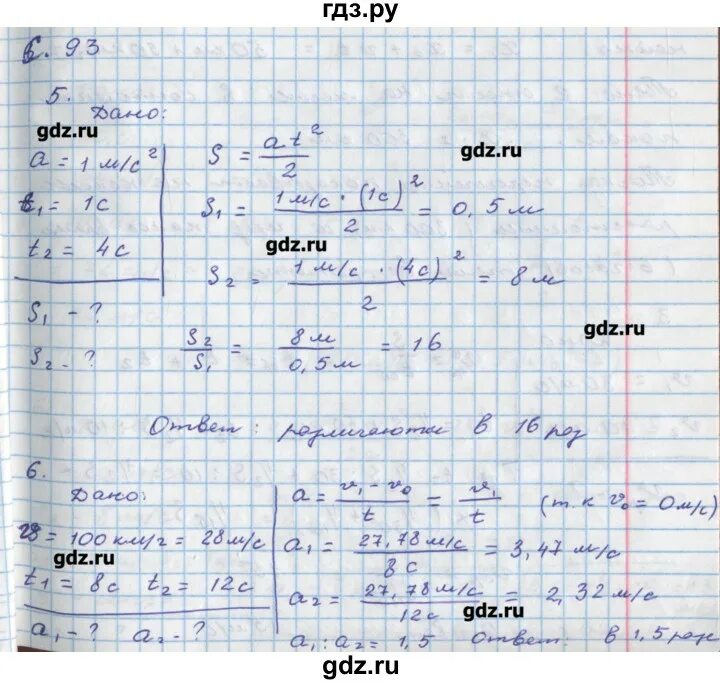 гдз.ру
с. 93
5.
Дано:
gdz.ru
a = 1 м/с²
t₁ = 1с
t₂ = 4с
S₁ - ?
S₂ - ?
S = at²/2
gdz.ru
S₁ = 1 м/с · (1с)²/2 = 0,5 м
gdz.ru
S₂ = 1 м/с · (4с)²/2 = 8 м
gdz.ru
S₂/S₁ = 8 м/0,5 м = 16
Ответ: различаются в 16 раз
6.
Дано:
= 100 км/г = 28 м/с
gdz.ru
t₁ = 8с t₂ = 12с
a₁ - ? a₂ - ?
a = v₁ - v₀/t = v₁/t (т.к v₀ = 0 м/с)
a₁ = 27,78 м/с/8с = 3,47 м/с
a₂ = 27,78 м/с/12с = 2,32 м/с
gdz.ru
a₁ : a₂ = 1,5 Ответ: в 1,5 раз
gdz.ru